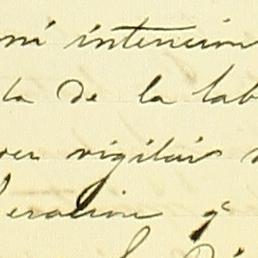 mi intencion
ta de la lab
ver vigilar
eracion q